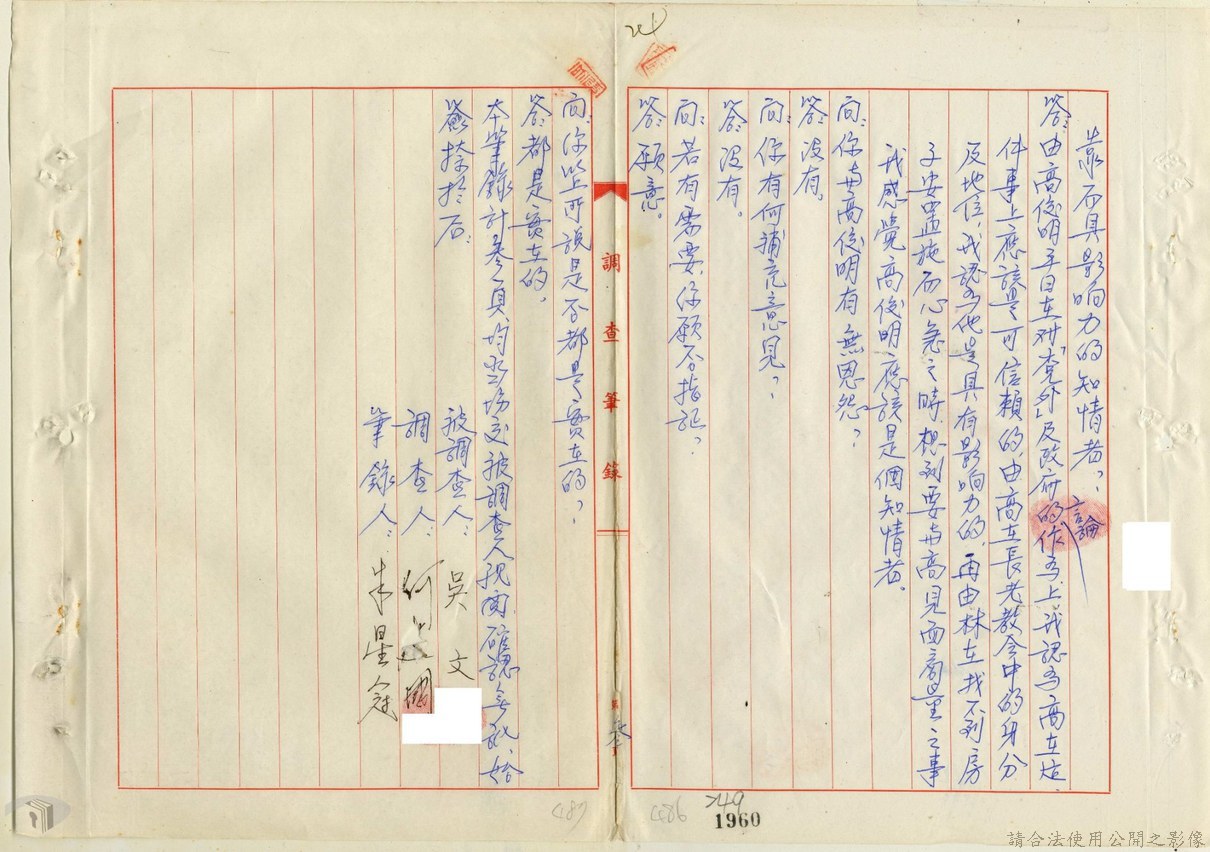 靠而具影响力的知情者？
答：由高俊明平日在对「党外」及政府的言論作為上，我認為高在這
件事上應該是可信賴的，由高在長老教会中的身分
及地位，我認為他是具有影响力的，再由林在找不到房
子安置施而心急之時，想到要与高見面商量之事
我感覺高俊明應該是個知情者。
问：你与高俊明有無恩怨？
答：没有。
问：你有何補充意見？
答：没有。
问：若有需要，你願不指証？
答：願意。
问：你以上所說是否都是實在的？
答：都是實在的。
本筆錄計叁頁均当場交被調查人親閱確認無訛，始
簽捺於后：
被調查人：吳文
調查人：何
筆錄人：朱星冠
調查筆錄
第叁頁
249
1960
486
487
請合法使用公開之影像